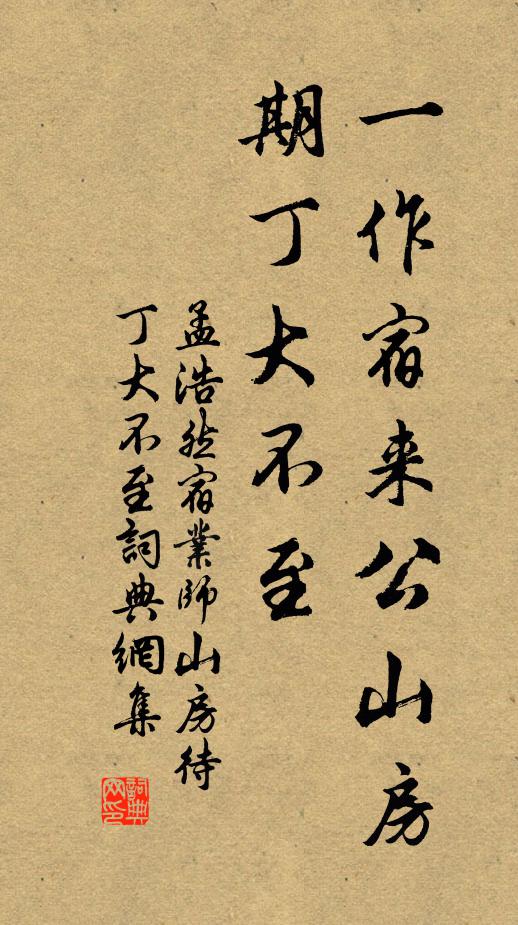 一作宿来公山房
期丁大不至
孟浩然宿業師山房待
丁大不至詞典網集
詞典
网印